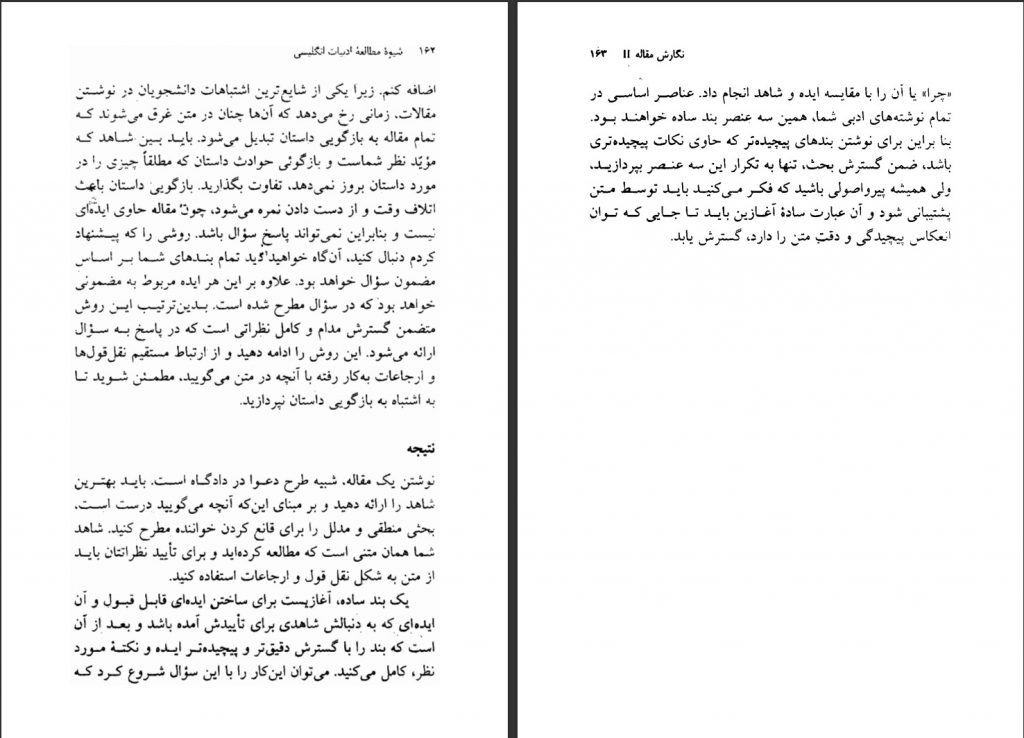 ۱۶۲ شیوهٔ مطالعهٔ ادبیات انگلیسی
اضافه کنم. زیرا یکی از شایع‌ترین اشتباهات دانشجویان در نوشتن
مقالات، زمانی رخ می‌دهد که آن‌ها چنان در متن غرق می‌شوند که
تمام مقاله به بازگویی داستان تبدیل می‌شود. باید بین شاهد که
مؤیّد نظر شماست و بازگوئی حوادث داستان که مطلقاً چیزی را در
مورد داستان بروز نمی‌دهد، تفاوت بگذارید. بازگویی داستان باعث
اتلاف وقت و از دست دادن نمره می‌شود، چون مقاله حاوی ایده‌ای
نیست و بنابراین نمی‌تواند پاسخ سؤال باشد. روشی را که پیشنهاد
کردم دنبال کنید، آن‌گاه خواهید دید تمام بندهای شما بر اساس
مضمون سؤال خواهد بود. علاوه بر این هر ایده مربوط به مضمونی
خواهد بود که در سؤال مطرح شده است. بدین‌ترتیب این روش
متضمن گسترش مدام و کامل نظراتی است که در پاسخ به سؤال
ارائه می‌شود. این روش را ادامه دهید و از ارتباط مستقیم نقل‌قول‌ها
و ارجاعات به‌کار رفته با آنچه در متن می‌گویید، مطمئن شوید تا
به اشتباه به بازگویی داستان نپردازید.
نتیجه
نوشتن یک مقاله، شبیه طرح دعوا در دادگاه است. باید بهترین
شاهد را ارائه دهید و بر مبنای این‌که آنچه می‌گویید درست است،
بحثی منطقی و مدلل را برای قانع کردن خواننده مطرح کنید. شاهد
شما همان متنی است که مطالعه کرده‌اید و برای تأیید نظراتتان باید
از متن به شکل نقل قول و ارجاعات استفاده کنید.
یک بند ساده، آغازیست برای ساختن ایده‌ای قابل قبول و آن
ایده‌ای که به دنبالش شاهدی برای تأییدش آمده باشد و بعد از آن
است که بند را با گسترش دقیق‌تر و پیچیده‌تر ایده و نکتهٔ مورد
نظر، کامل می‌کنید. می‌توان این‌کار را با این سؤال شروع کرد که
نگارش مقاله II ۱۶۳
«چرا» یا آن را با مقایسه ایده و شاهد انجام داد. عناصر اساسی در
تمام نوشته‌های ادبی شما، همین سه عنصر بند ساده خواهند بود.
بنا براین برای نوشتن بندهای پیچیده‌تر که حاوی نکات پیچیده‌تری
باشد، ضمن گسترش بحث، تنها به تکرار این سه عنصر بپردازید،
ولی همیشه پیرواصولی باشید که فکر می‌کنید باید توسط متن
پشتیبانی شود و آن عبارت سادهٔ آغازین باید تا جایی که توان
انعکاس پیچیدگی و دقتِ متن را دارد، گسترش یابد.